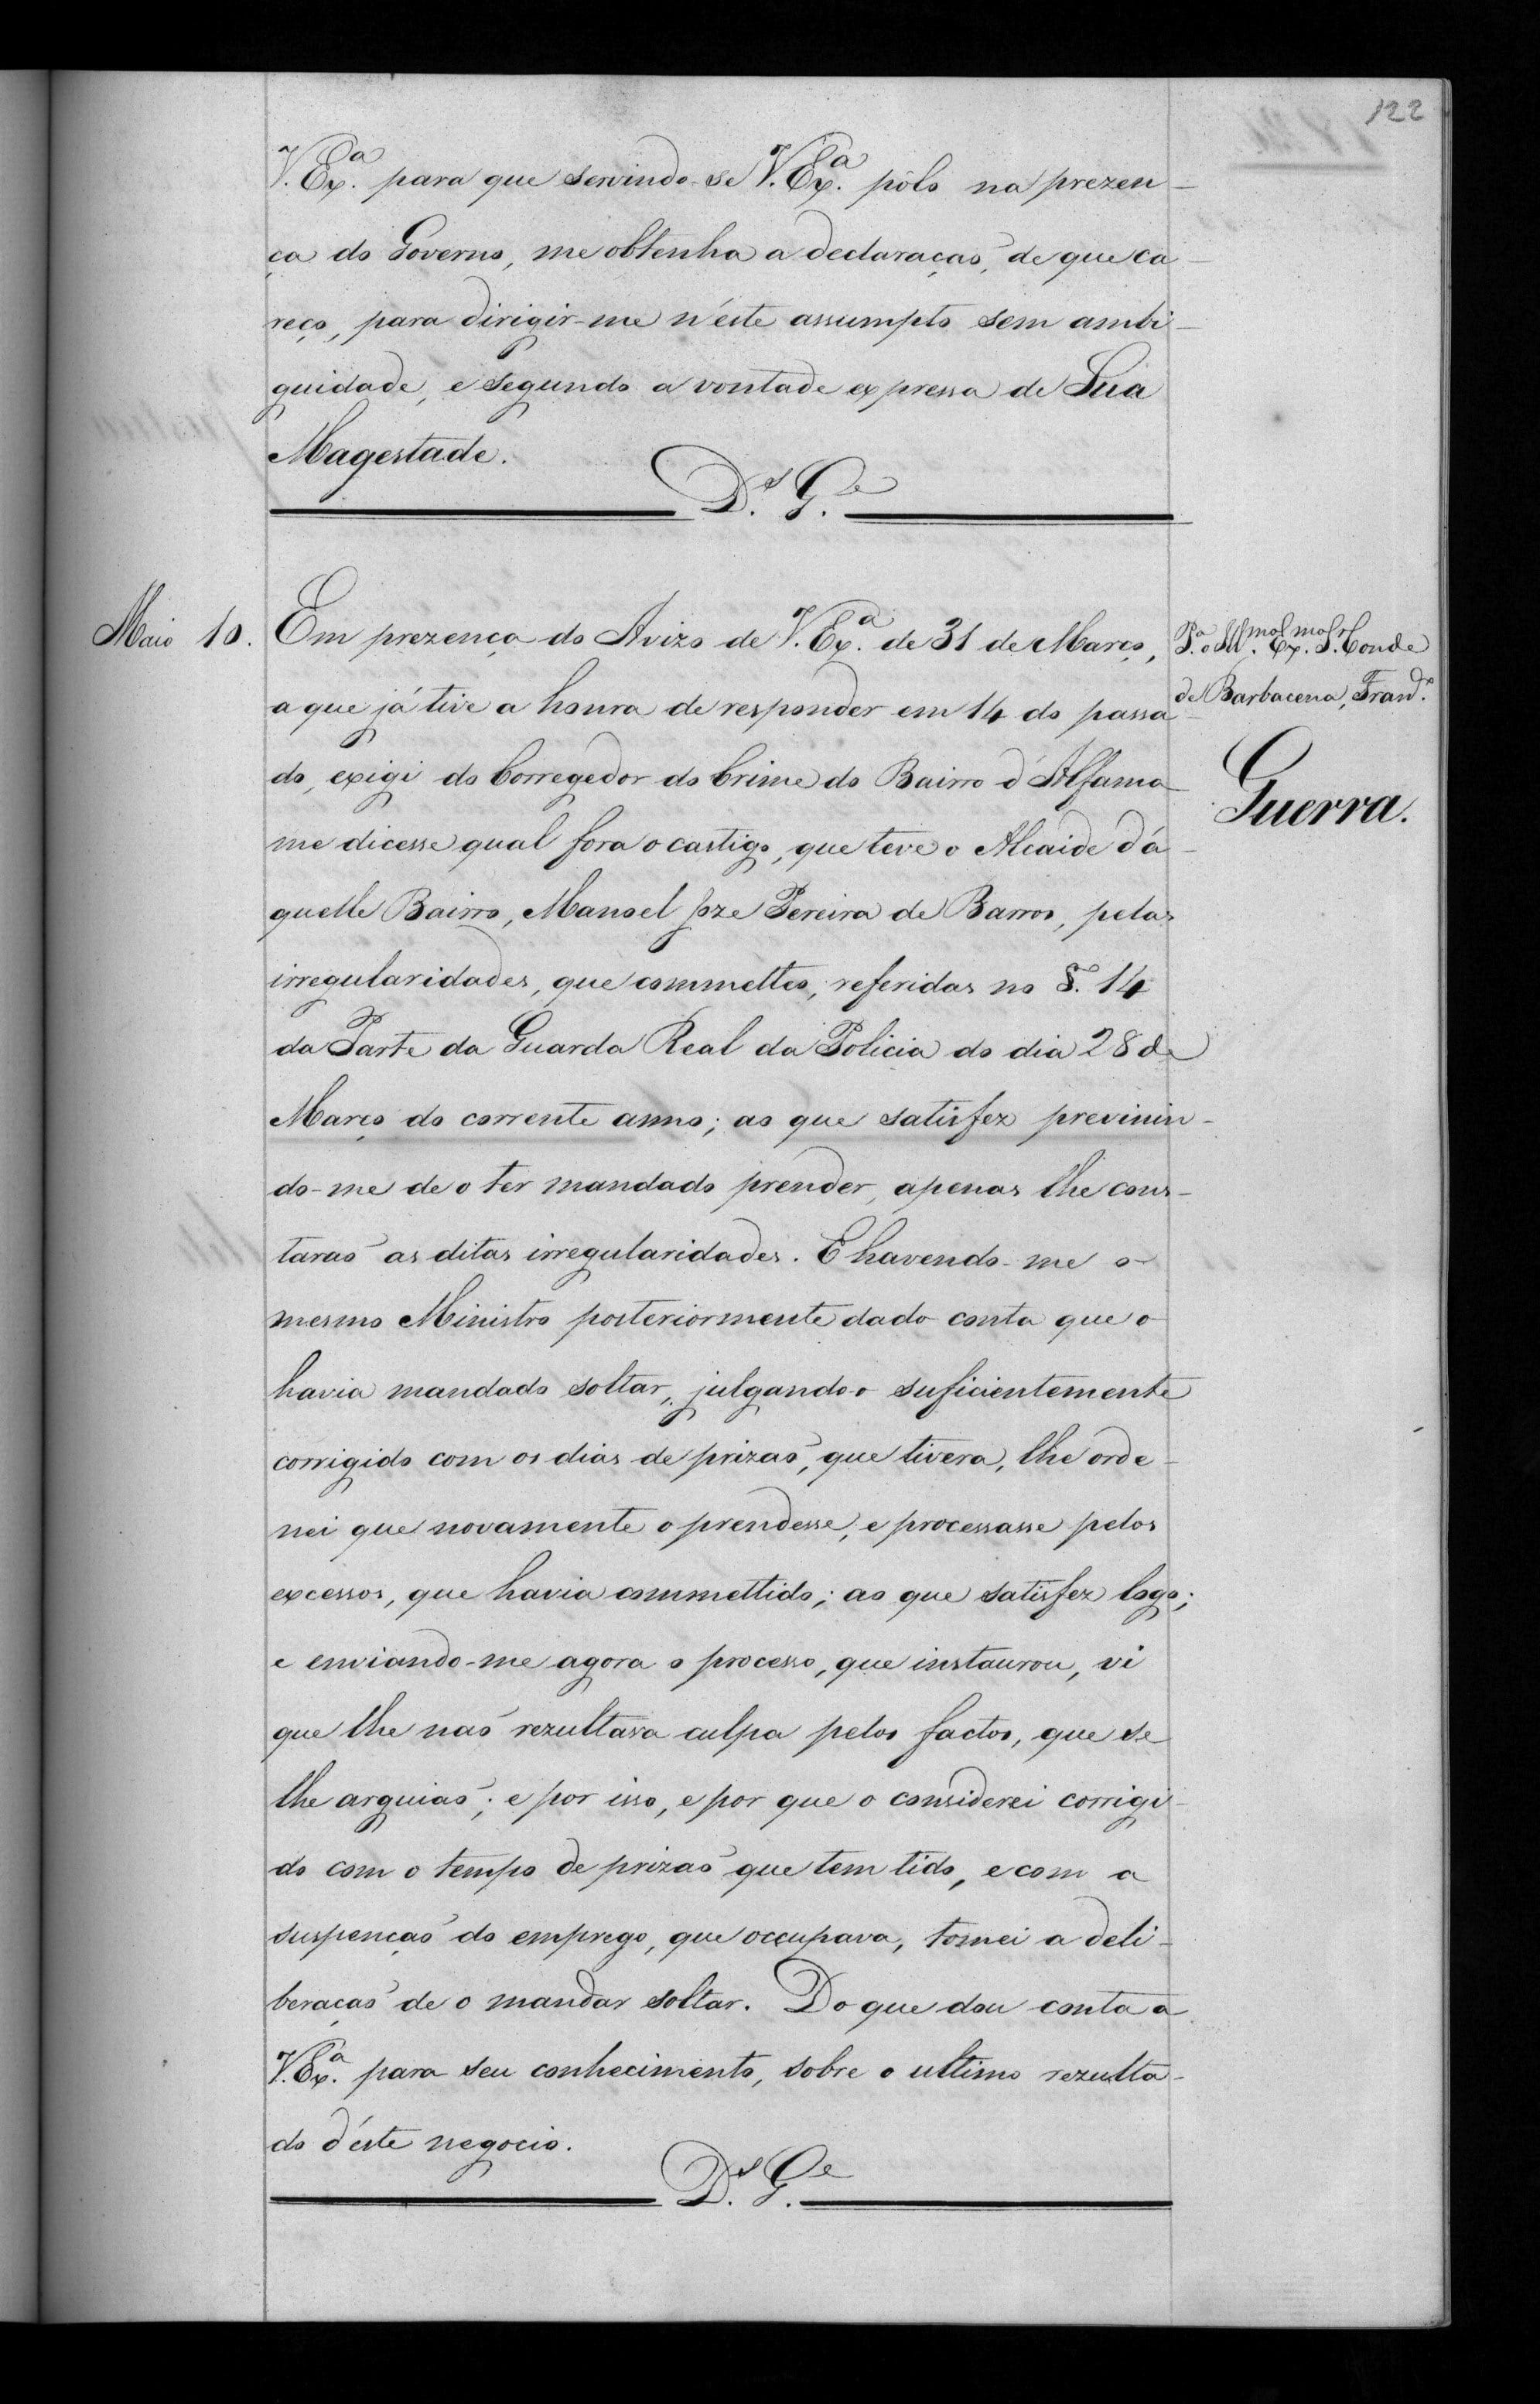 122
V. Ex.ª para que servindo-se V. Ex.ª pôlo na prezen-
ça do Governo, me obtenha a declaraçaõ, de que ca-
reço, para dirigir-me n'éste assumpto sem ambi-
guidade, e segundo a vontade expressa de Sua
Magestade.
D.s G.e
Maio 10.
Em prezença do Avizo de V. Ex.ª de 31 de Março,
a que já tive a honra de responder em 14 do passa-
do, exigi do Corregedor do Crime do Bairro d'Alfama
me dicesse qual fora o castigo, que teve o Alcaide d'a-
quelle Bairro, Manoel Joze Pereira de Barros, pelas
irregularidades, que commetteo, referidas no §. 14
da Parte da Guarda Real da Policia do dia 28 de
Março do corrente anno; ao que satisfez previnin-
do-me de o ter mandado prender, apenas lhe cons-
taraõ as ditas irregularidades. E havendo-me o
mesmo Ministro posteriormente dado conta que o
havia mandado soltar, julgando-o suficientemente
corrigido com os dias de prizaõ, que tivera, lhe orde-
nei que novamente o prendesse, e processasse pelos
excessos, que havia commettido; ao que satisfez logo;
e enviando-me agora o processo, que instaurou, vi
que lhe naõ rezultava culpa pelos factos, que se
lhe arguiaõ; e por isso, e por que o considerei corrigi-
do com o tempo de prizaõ que tem tido, e com a
suspençaõ do emprego, que occupava, tomei a deli-
beraçaõ de o mandar soltar. Do que dou conta a
V. Ex.ª para seu conhecimento, sobre o ultimo rezulta-
do d'éste negocio.
D.s G.e
P.ª o Ill.mo Ex.mo S.r Conde
de Barbacena, Fran.
Guerra.